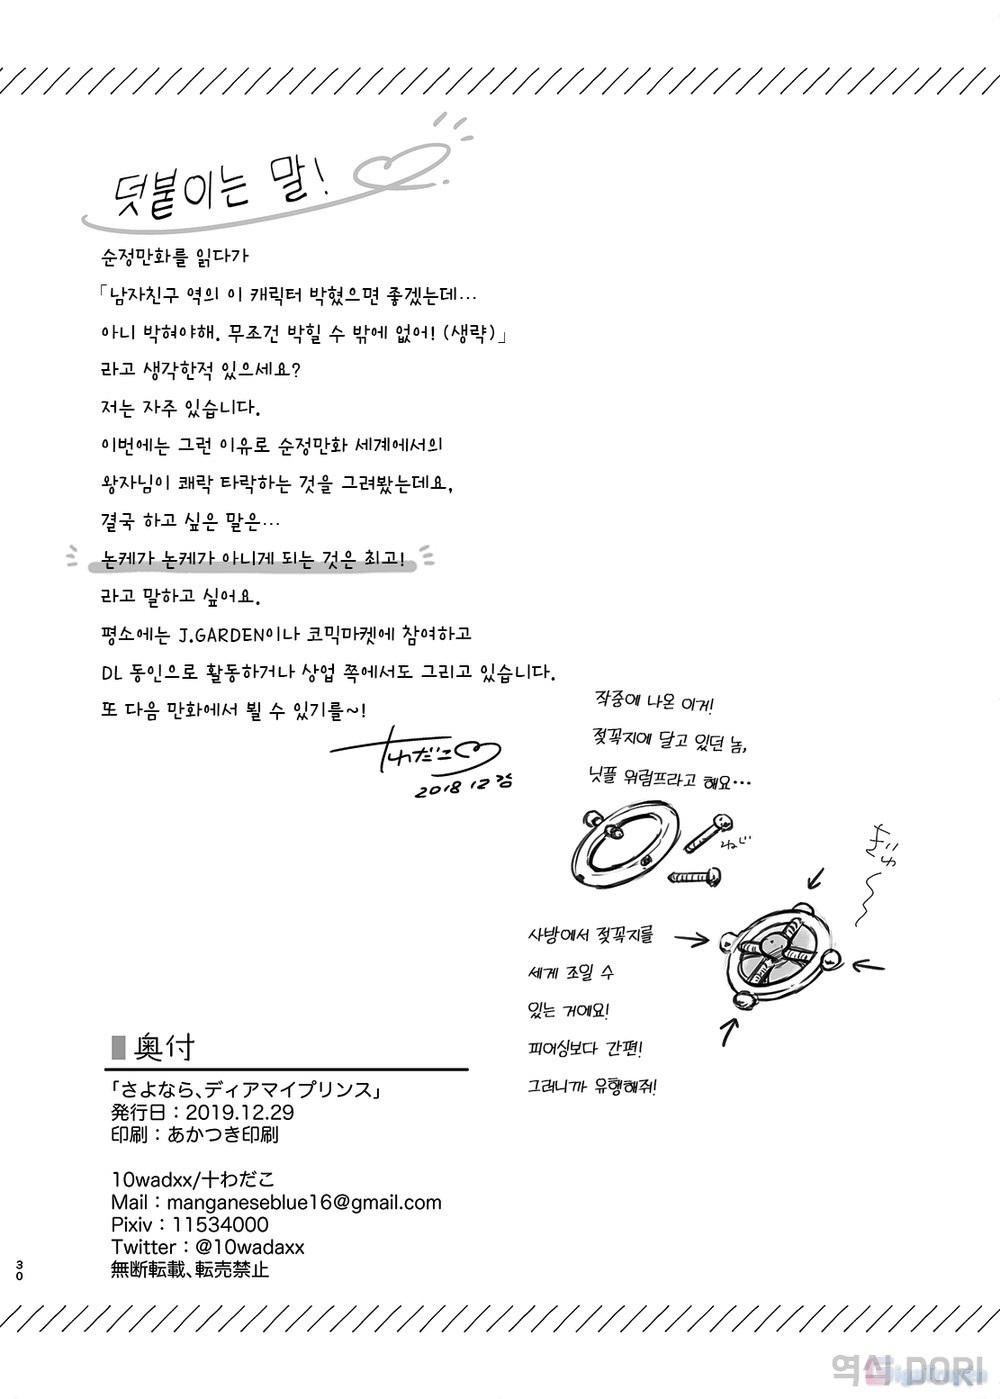 덧붙이는 말!
순정만화를 읽다가
「남자친구 역의 이 캐릭터 박혔으면 좋겠는데…
아니 박혀야해. 무조건 박힐 수 밖에 없어! (생략)」
라고 생각한적 있으세요?
저는 자주 있습니다.
이번에는 그런 이유로 순정만화 세계에서의
왕자님이 쾌락 타락하는 것을 그려봤는데요,
결국 하고 싶은 말은…
논케가 논케가 아니게 되는 것은 최고!
라고 말하고 싶어요.
평소에는 J.GARDEN이나 코믹마켓에 참여하고
DL 동인으로 활동하거나 상업 쪽에서도 그리고 있습니다.
또 다음 만화에서 뵐 수 있기를~!
十わだこ
2018 12
작중에 나온 이거!
젖꼭지에 달고 있던 놈,
닛플 위럼프라고 해요…
ねじ
ぎゅ
사방에서 젖꼭지를
세게 조일 수
있는 거에요!
피어싱보다 간편!
그러니까 유행해줘!
奥付
「さよなら、ディアマイプリンス」
発行日：2019.12.29
印刷：あかつき印刷
10wadxx/十わだこ
Mail：manganeseblue16@gmail.com
Pixiv：11534000
Twitter：@10wadaxx
無断転載、転売禁止
30
역식 DORI